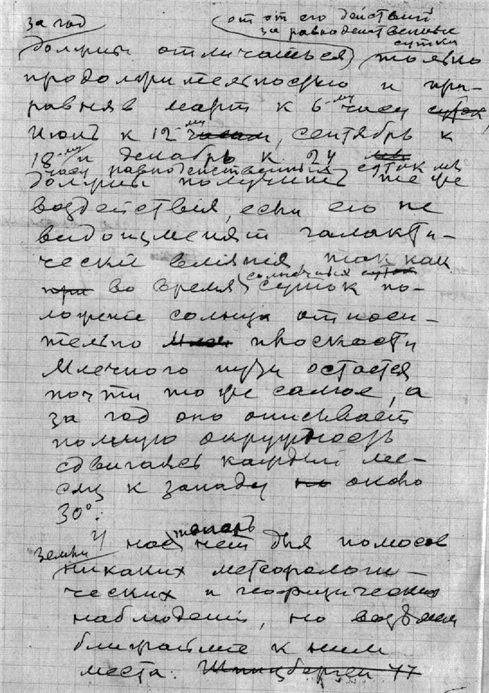 за год
от от его действий
за равноденственные
сутки
должны отличаться только
продолжительностью и при-
равняв март к 6-му часу суток,
июнь к 12-му часам, сентябрь к
18-му и декабрь к 24
часу равноденственных суток мы
должны получить те же
воздействия, если его не
видоизменят галакти-
ческия влияния так как
при во время солнечных суток
суток по-
ложение солнца относи-
тельно плоскости
Млечного пути остается
почти то же самое, а
за год оно описывает
полную окружность
сдвигаясь каждый ме-
сяц к западу на около
30°.
У нас теперь нет для полюсов
земли
никаких метеорологи-
ческих и геофизических
наблюдений, но возьмем
ближайшие к ним
места. Шпицберген 77